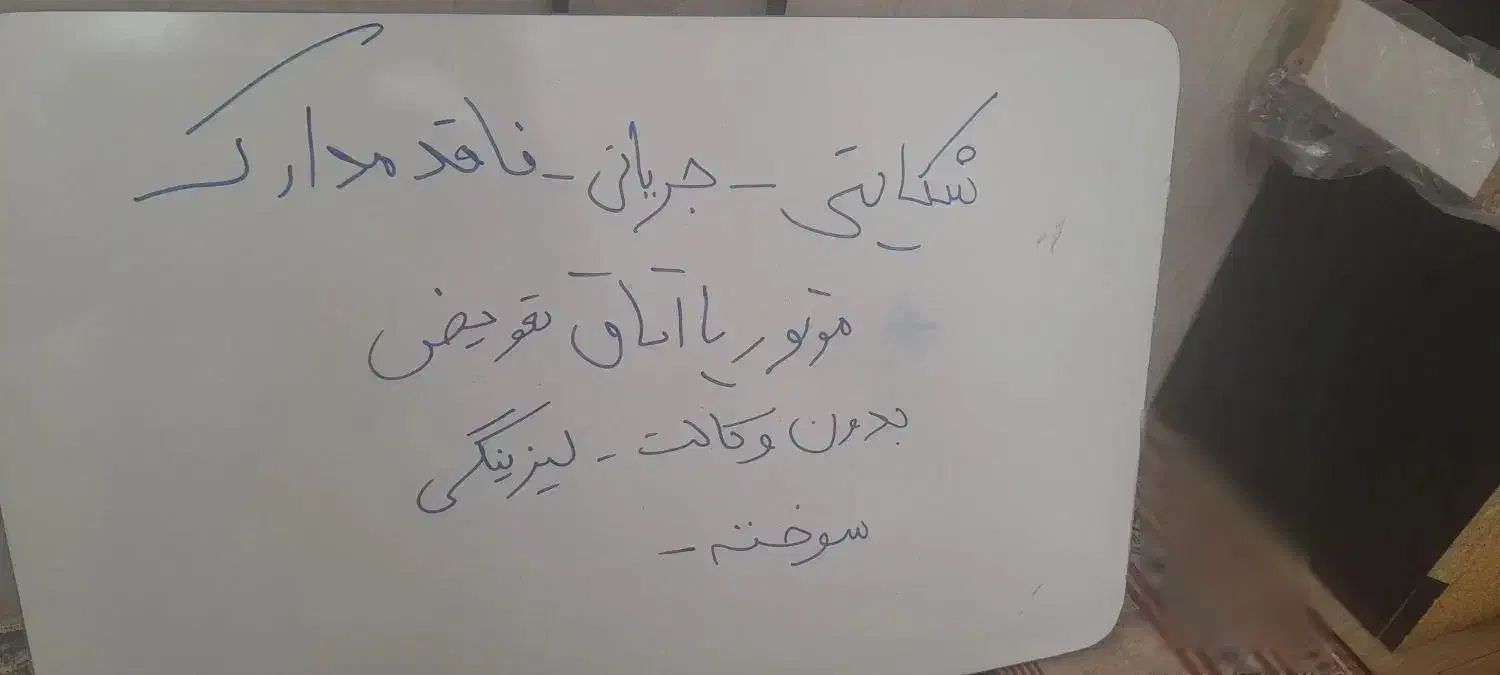 شکایتی - جریانی - فاقد مدارک
موتور یا اتاق تعویض
بدون وکالت - لیزینگی
سوخته -